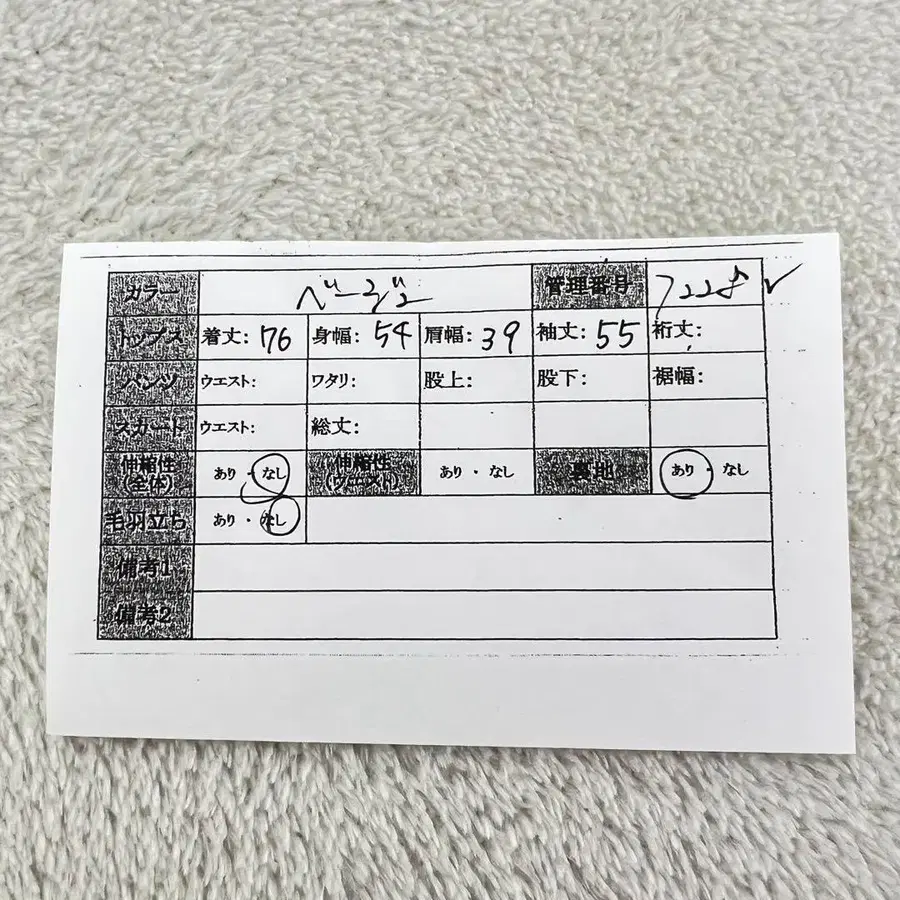 カラー ベージュ 管理番号
トップス 着丈: 76 身幅: 54 肩幅: 39 袖丈: 55 裄丈:
パンツ ウエスト: ワタリ: 股上: 股下: 裾幅:
スカート ウエスト: 総丈:
伸縮性(全体) あり・なし 伸縮性(ウエスト) あり・なし 裏地 あり・なし
毛羽立ち あり・なし
備考1
備考2